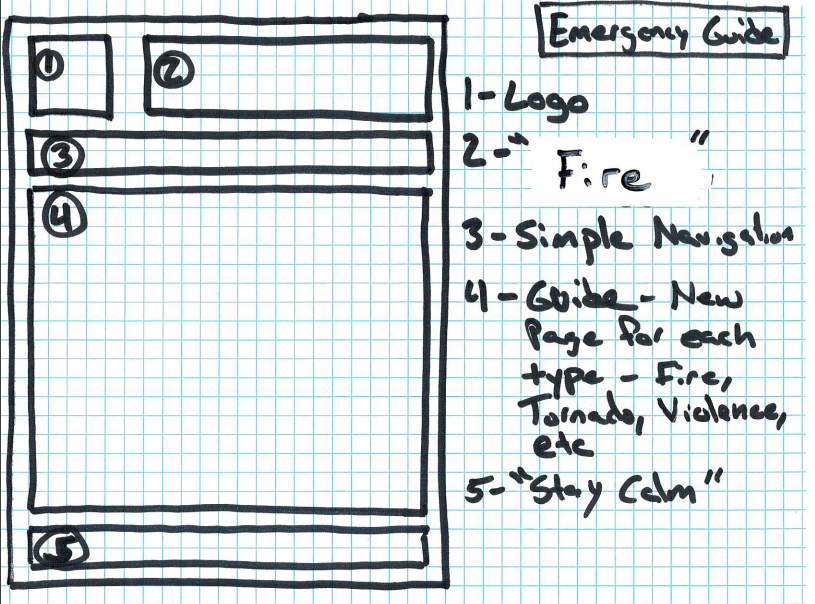 Emergency Guide
1
2
3
4
5
1-Logo
2-" Fire "
3-Simple Navigation
4-Guide - New
Page for each
type - Fire,
Tornado, Violence,
etc
5-"Stay Calm"